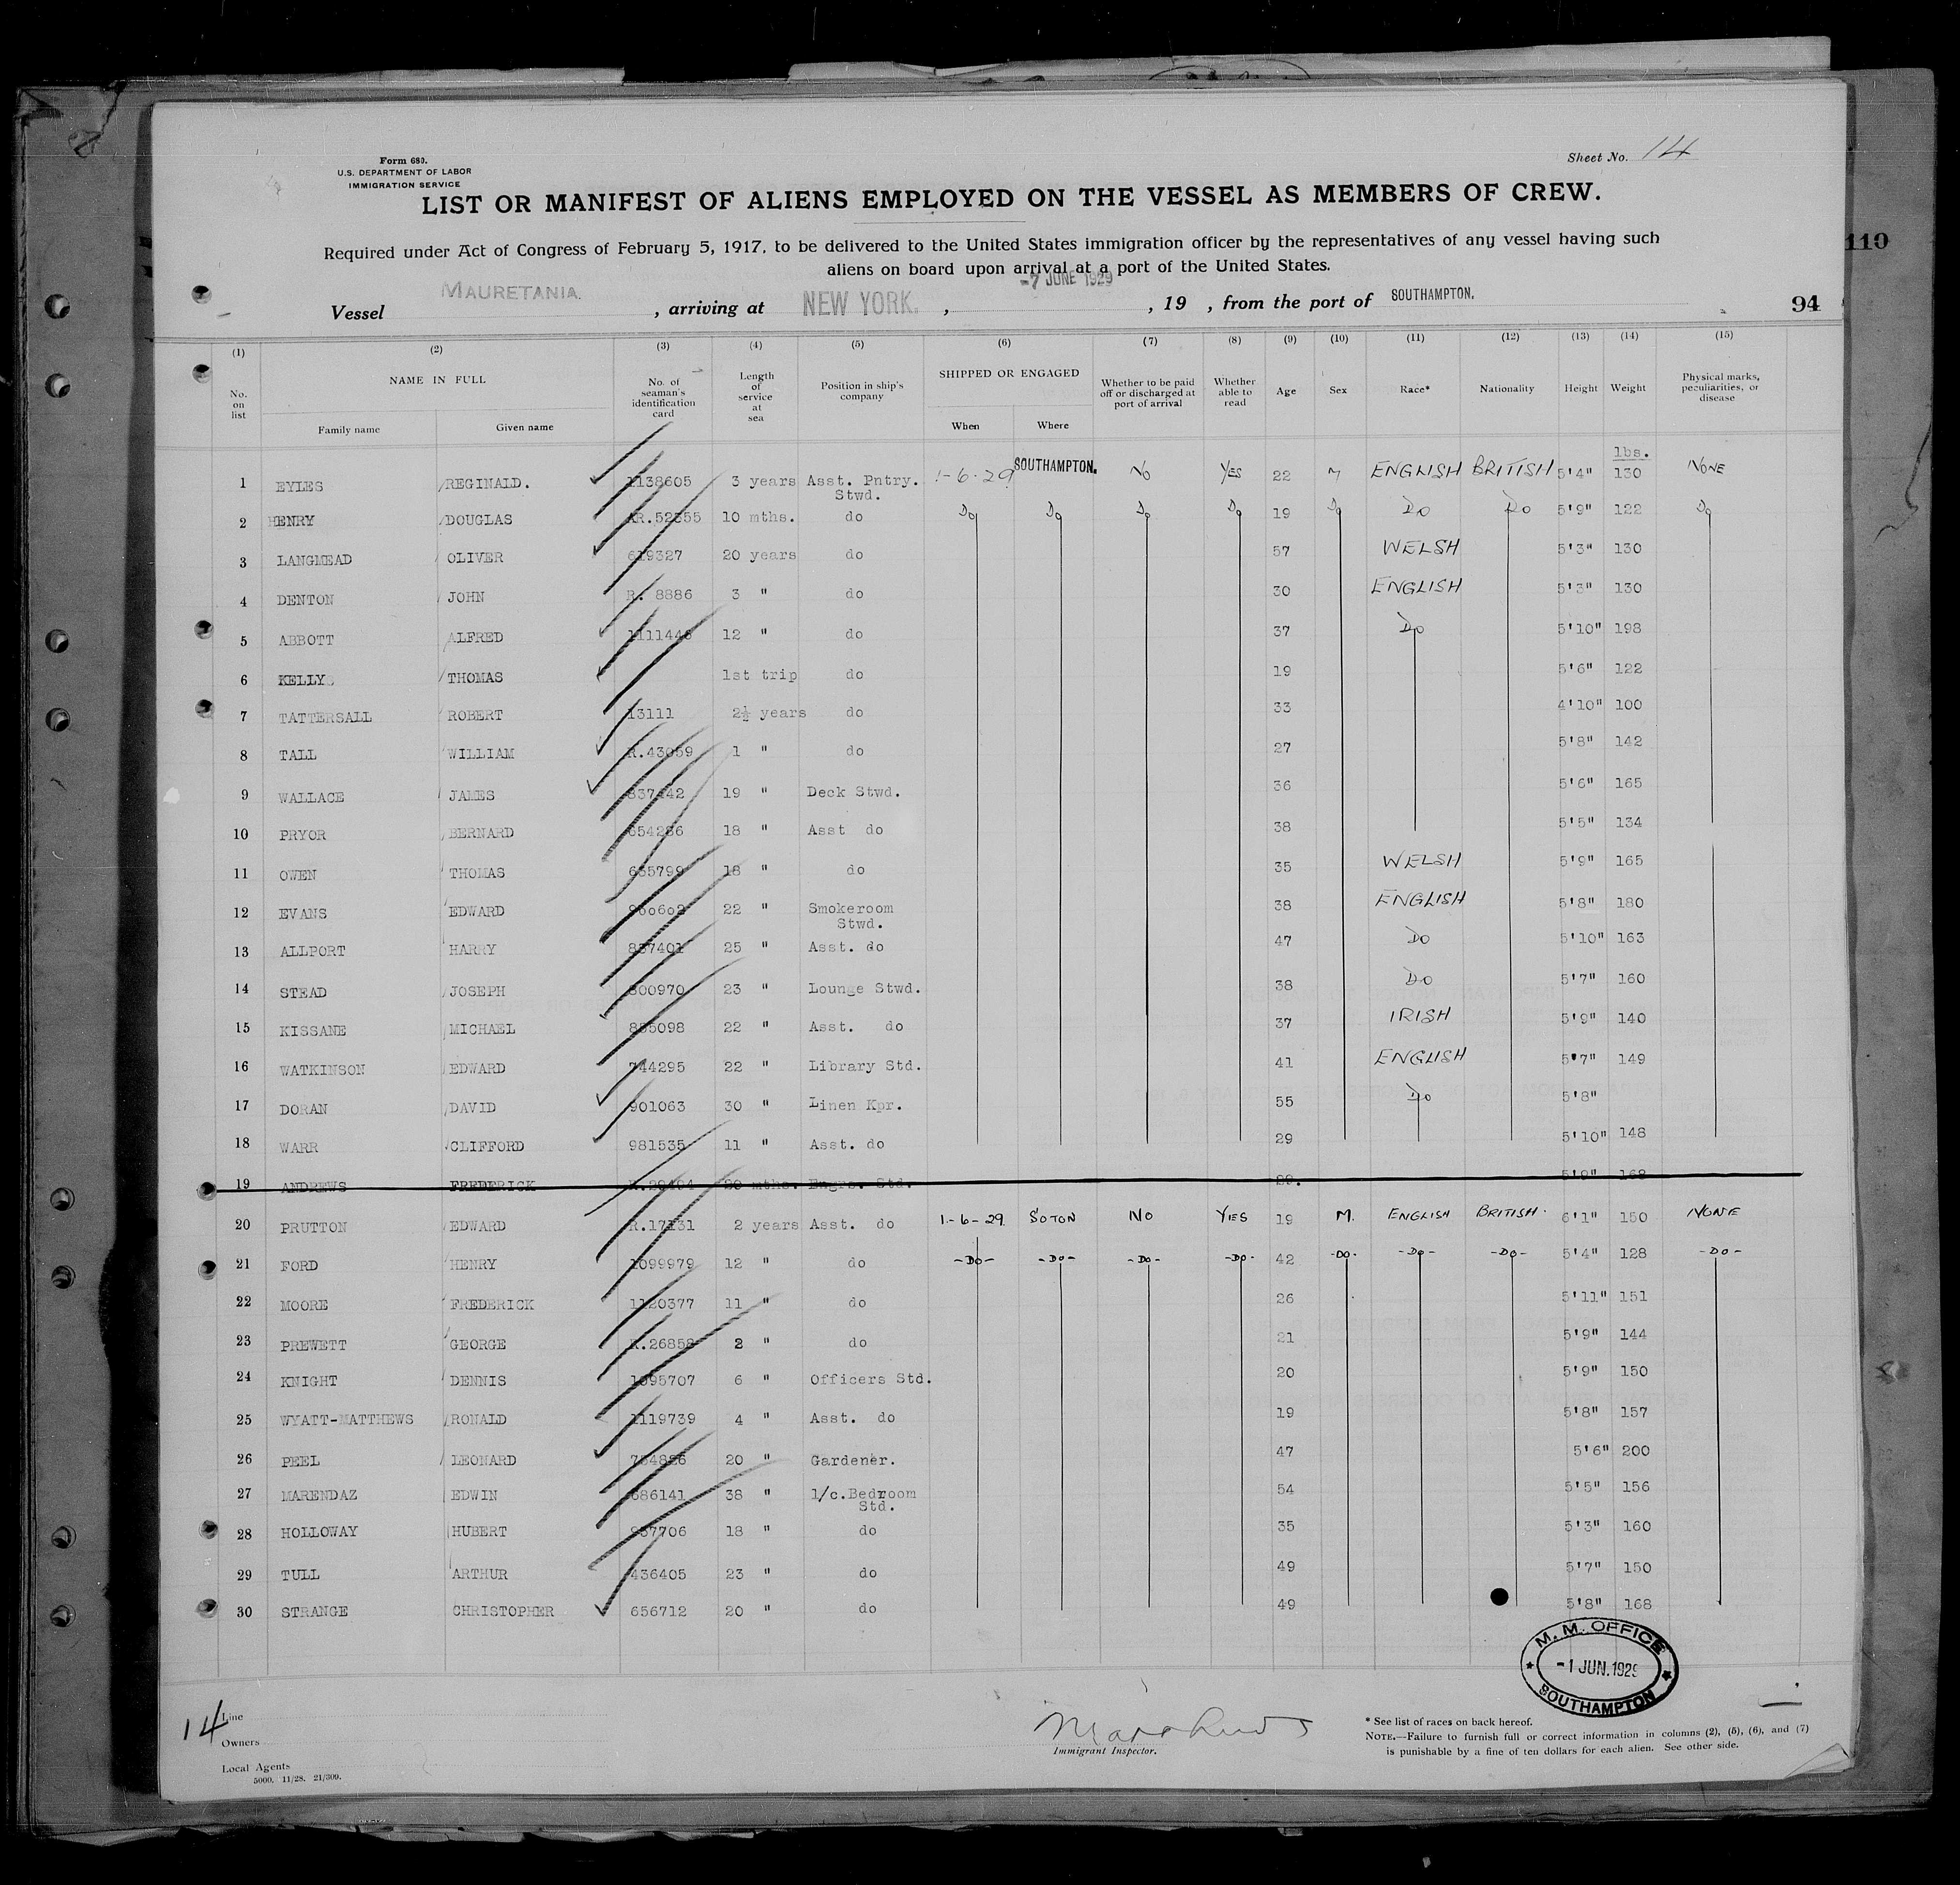 Form 680.
U.S. DEPARTMENT OF LABOR
IMMIGRATION SERVICE
Sheet No. 14
LIST OR MANIFEST OF ALIENS EMPLOYED ON THE VESSEL AS MEMBERS OF CREW.
Required under Act of Congress of February 5, 1917, to be delivered to the United States immigration officer by the representatives of any vessel having such
aliens on board upon arrival at a port of the United States.
110
-7 JUNE 1929
Vessel MAURETANIA. , arriving at NEW YORK. , , 19 , from the port of SOUTHAMPTON. 94
(1) (2) (3) (4) (5) (6) (7) (8) (9) (10) (11) (12) (13) (14) (15)
No. on list NAME IN FULL Family name Given name No. of seaman's identification card Length of service at sea Position in ship's company SHIPPED OR ENGAGED When Where Whether to be paid off or discharged at port of arrival Whether able to read Age Sex Race* Nationality Height Weight Physical marks, peculiarities, or disease
lbs.
1 EYLES REGINALD. 1138605 3 years Asst. Pntry. Stwd. 1-6-29 SOUTHAMPTON. NO YES 22 M ENGLISH BRITISH 5'4" 130 NONE
2 HENRY DOUGLAS AR.52355 10 mths. do Do Do Do Do 19 Do Do Do 5'9" 122 Do
3 LANGMEAD OLIVER 619327 20 years do 57 WELSH 5'3" 130
4 DENTON JOHN R. 8886 3 " do 30 ENGLISH 5'3" 130
5 ABBOTT ALFRED 12 " do 37 Do 5'10" 198
6 KELLY THOMAS 1st trip do 19 5'6" 122
7 TATTERSALL ROBERT 13111 2½ years do 33 4'10" 100
8 TALL WILLIAM R.43059 1 " do 27 5'8" 142
9 WALLACE JAMES 837442 19 " Deck Stwd. 36 5'6" 165
10 PRYOR BERNARD 18 " Asst do 38 5'5" 134
11 OWEN THOMAS 18 " do 35 WELSH 5'9" 165
12 EVANS EDWARD 22 " Smokeroom Stwd. 38 ENGLISH 5'8" 180
13 ALLPORT HARRY 837401 25 " Asst. do 47 DO 5'10" 163
14 STEAD JOSEPH 800970 23 " Lounge Stwd. 38 Do 5'7" 160
15 KISSANE MICHAEL 22 " Asst. do 37 IRISH 5'9" 140
16 WATKINSON EDWARD 744295 22 " Library Std. 41 ENGLISH 5'7" 149
17 DORAN DAVID 901063 30 " Linen Kpr. 55 Do 5'8"
18 WARR CLIFFORD 981535 11 " Asst. do 29 5'10" 148
19 ANDREWS FREDERICK 20 mths. Engrs. Std. 5'9" 168
20 PRUTTON EDWARD R.17131 2 years Asst. do 1-6-29 SOTON NO YES 19 M. ENGLISH BRITISH. 6'1" 150 NONE
21 FORD HENRY 1099979 12 " do -DO- -DO- -DO- -DO- 42 -DO- -DO- -DO- 5'4" 128 -DO-
22 MOORE FREDERICK 1120377 11 " do 26 5'11" 151
23 PREWETT GEORGE 2 " do 21 5'9" 144
24 KNIGHT DENNIS 1095707 6 " Officers Std. 20 5'9" 150
25 WYATT-MATTHEWS RONALD 1119739 4 " Asst. do 19 5'8" 157
26 PEEL LEONARD 20 " Gardener. 47 5'6" 200
27 MARENDAZ EDWIN 686141 38 " 1/c.Bedroom Std. 54 5'5" 156
28 HOLLOWAY HUBERT 937706 18 " do 35 5'3" 160
29 TULL ARTHUR 436405 23 " do 49 5'7" 150
30 STRANGE CHRISTOPHER 656712 20 " do 49 5'8" 168
M. M. OFFICE
-1 JUN. 1929
SOUTHAMPTON
14
Line
Owners
Local Agents
5000. 11/28. 21/309.
Immigrant Inspector.
* See list of races on back hereof.
NOTE.—Failure to furnish full or correct information in columns (2), (5), (6), and (7)
is punishable by a fine of ten dollars for each alien. See other side.